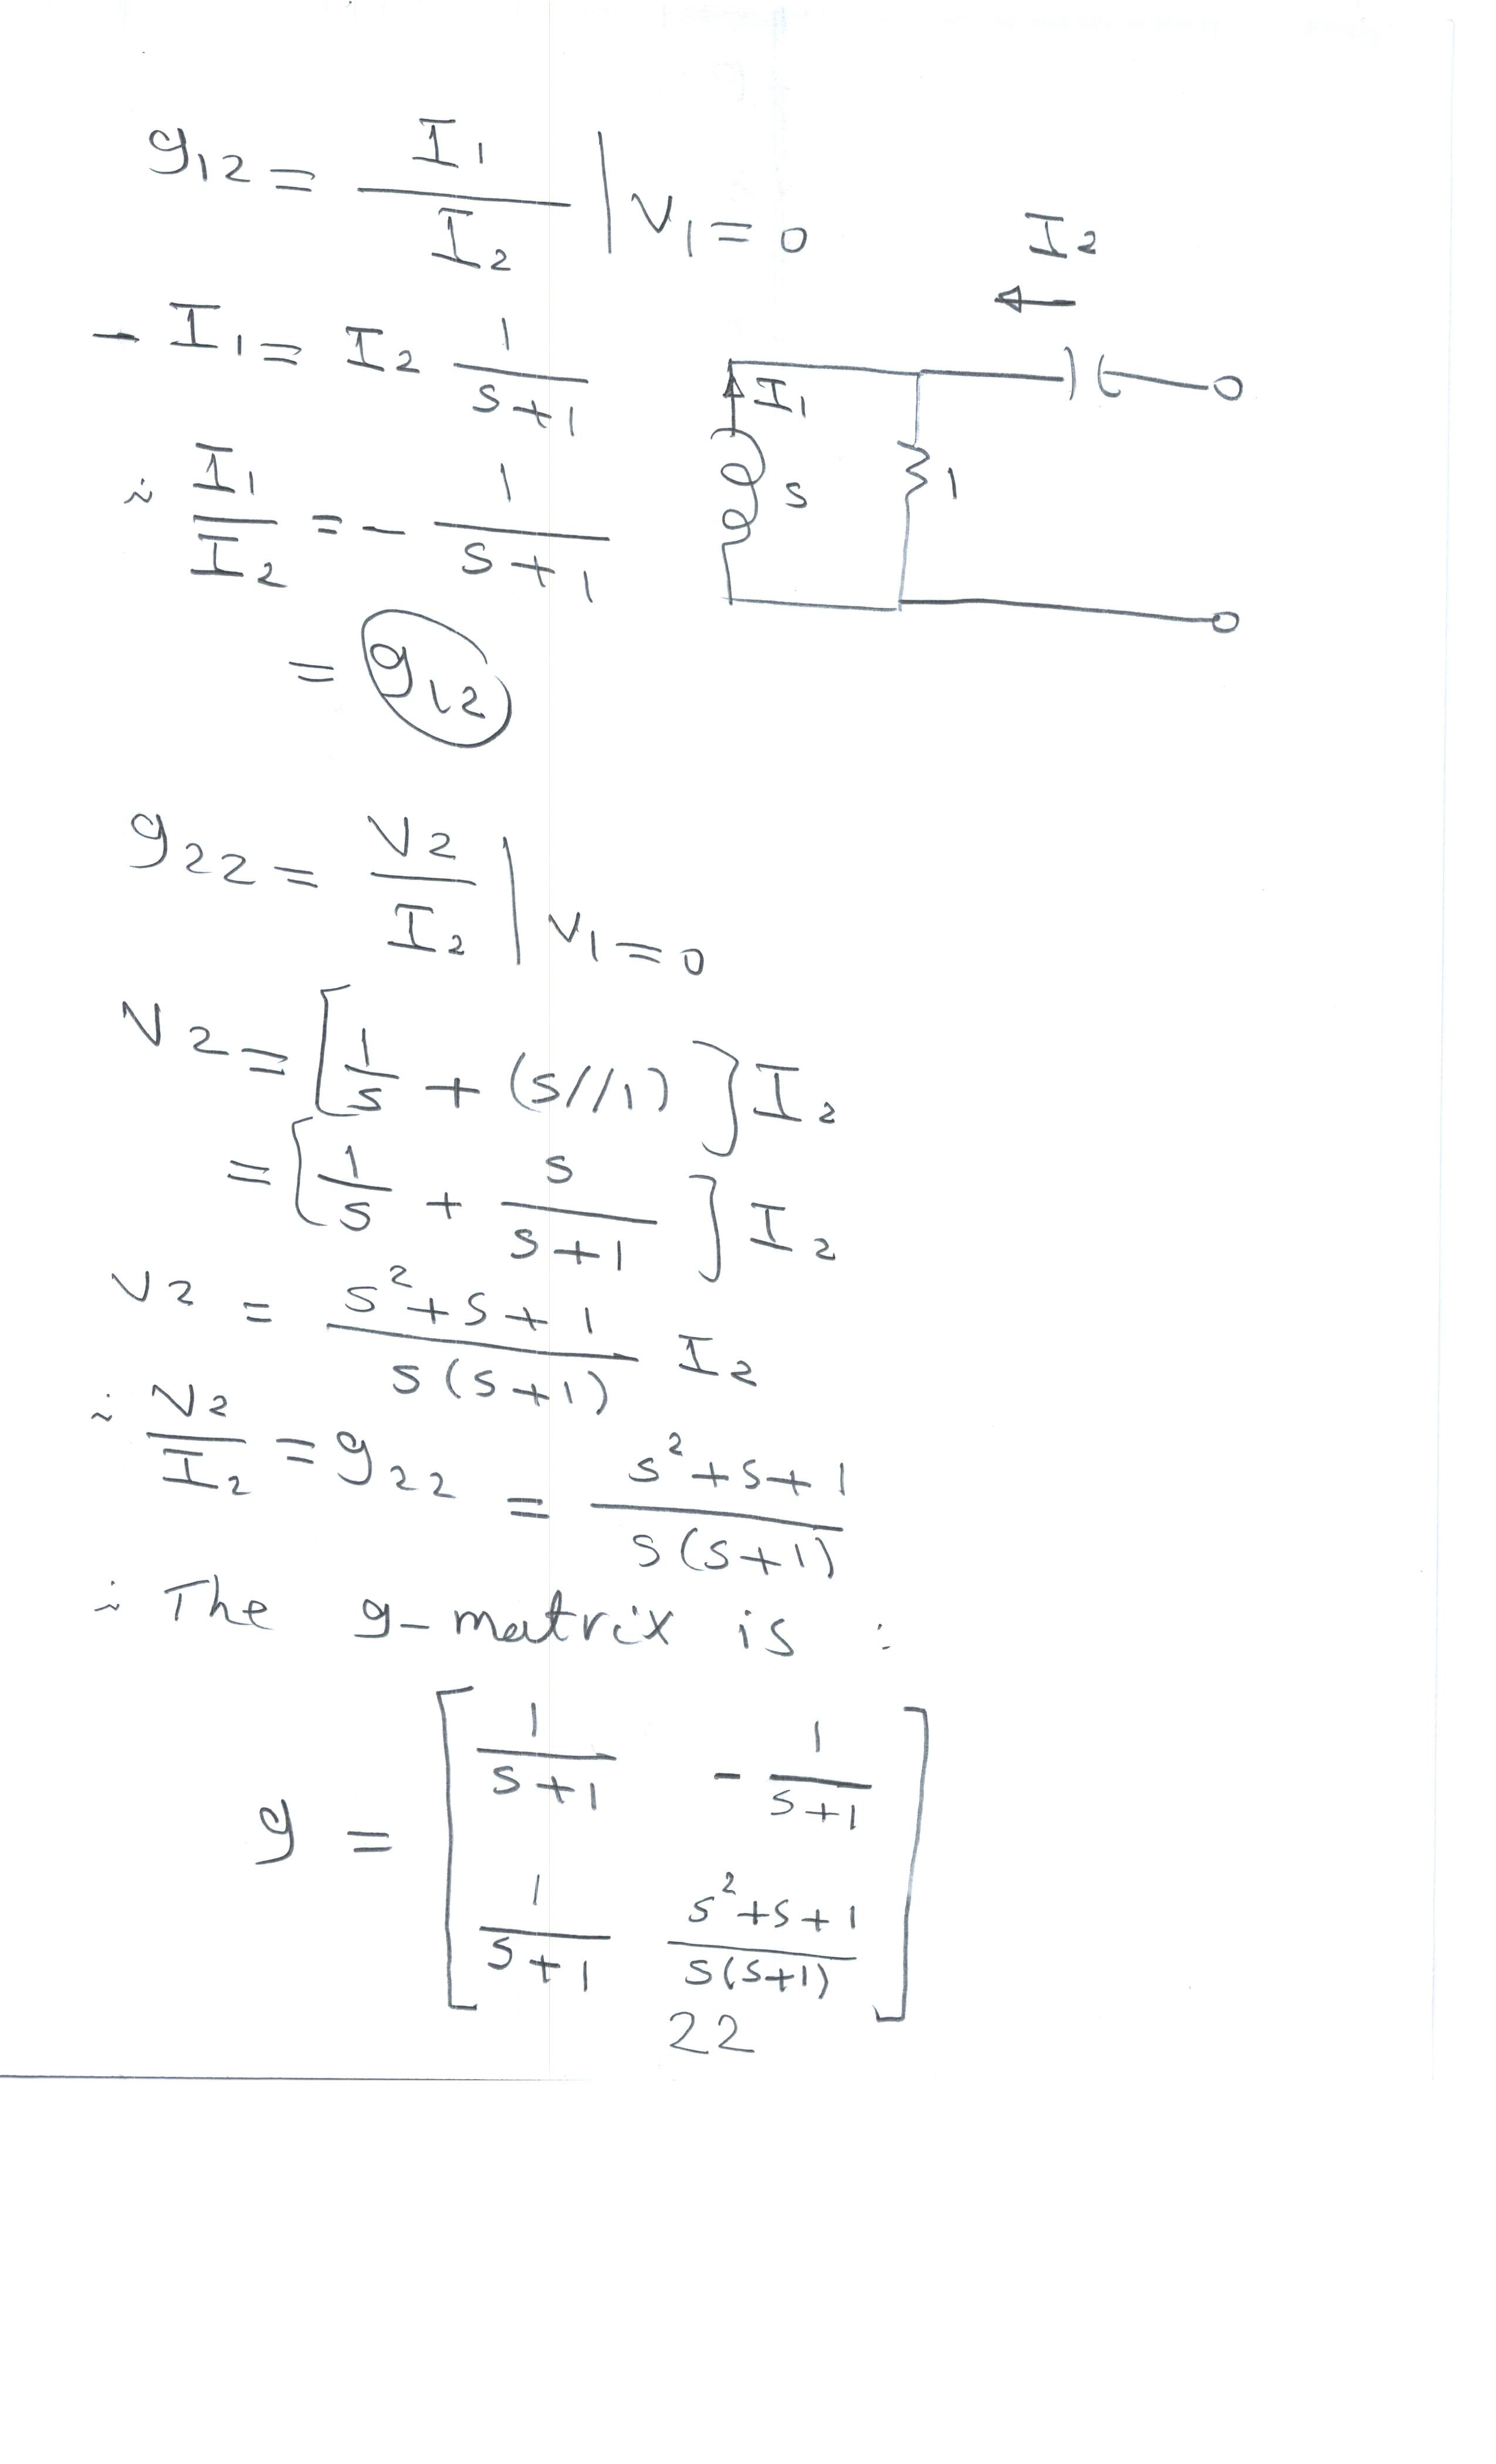 g12 = I1 / I2 | V1 = 0
I2
- I1 = I2 1 / s+1
I1
∴ I1 / I2 = - 1 / s+1
s
1
= g12
g22 = V2 / I2 | V1 = 0
V2 = [ 1/s + (s//1) ] I2
= [ 1/s + s / s+1 ] I2
V2 = s²+s+1 / s(s+1) I2
∴ V2 / I2 = g22 = s²+s+1 / s(s+1)
∴ The g-matrix is :
g = [ 1 / s+1 - 1 / s+1
1 / s+1 s²+s+1 / s(s+1) ]
22